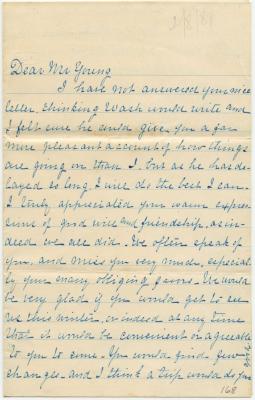 2/8/81
Dear Mr Young
I have not answered your nice
letter, thinking Wash would write and
I felt sure he could give you a far
more pleasant account of how things
are going on than I, but as he has de-
layed so long I will do the best I can.
I truly appreciated your warm expres-
sions of good will and friendship, as in-
deed we all did. We often speak of
you, and miss you very much, especial-
ly your many obliging favors. We would
be very glad if you would get to see
us this winter, or indeed at any time
that it would be convenient or agreeable
to you to come. You would find few
changes and I think a trip would do you
168